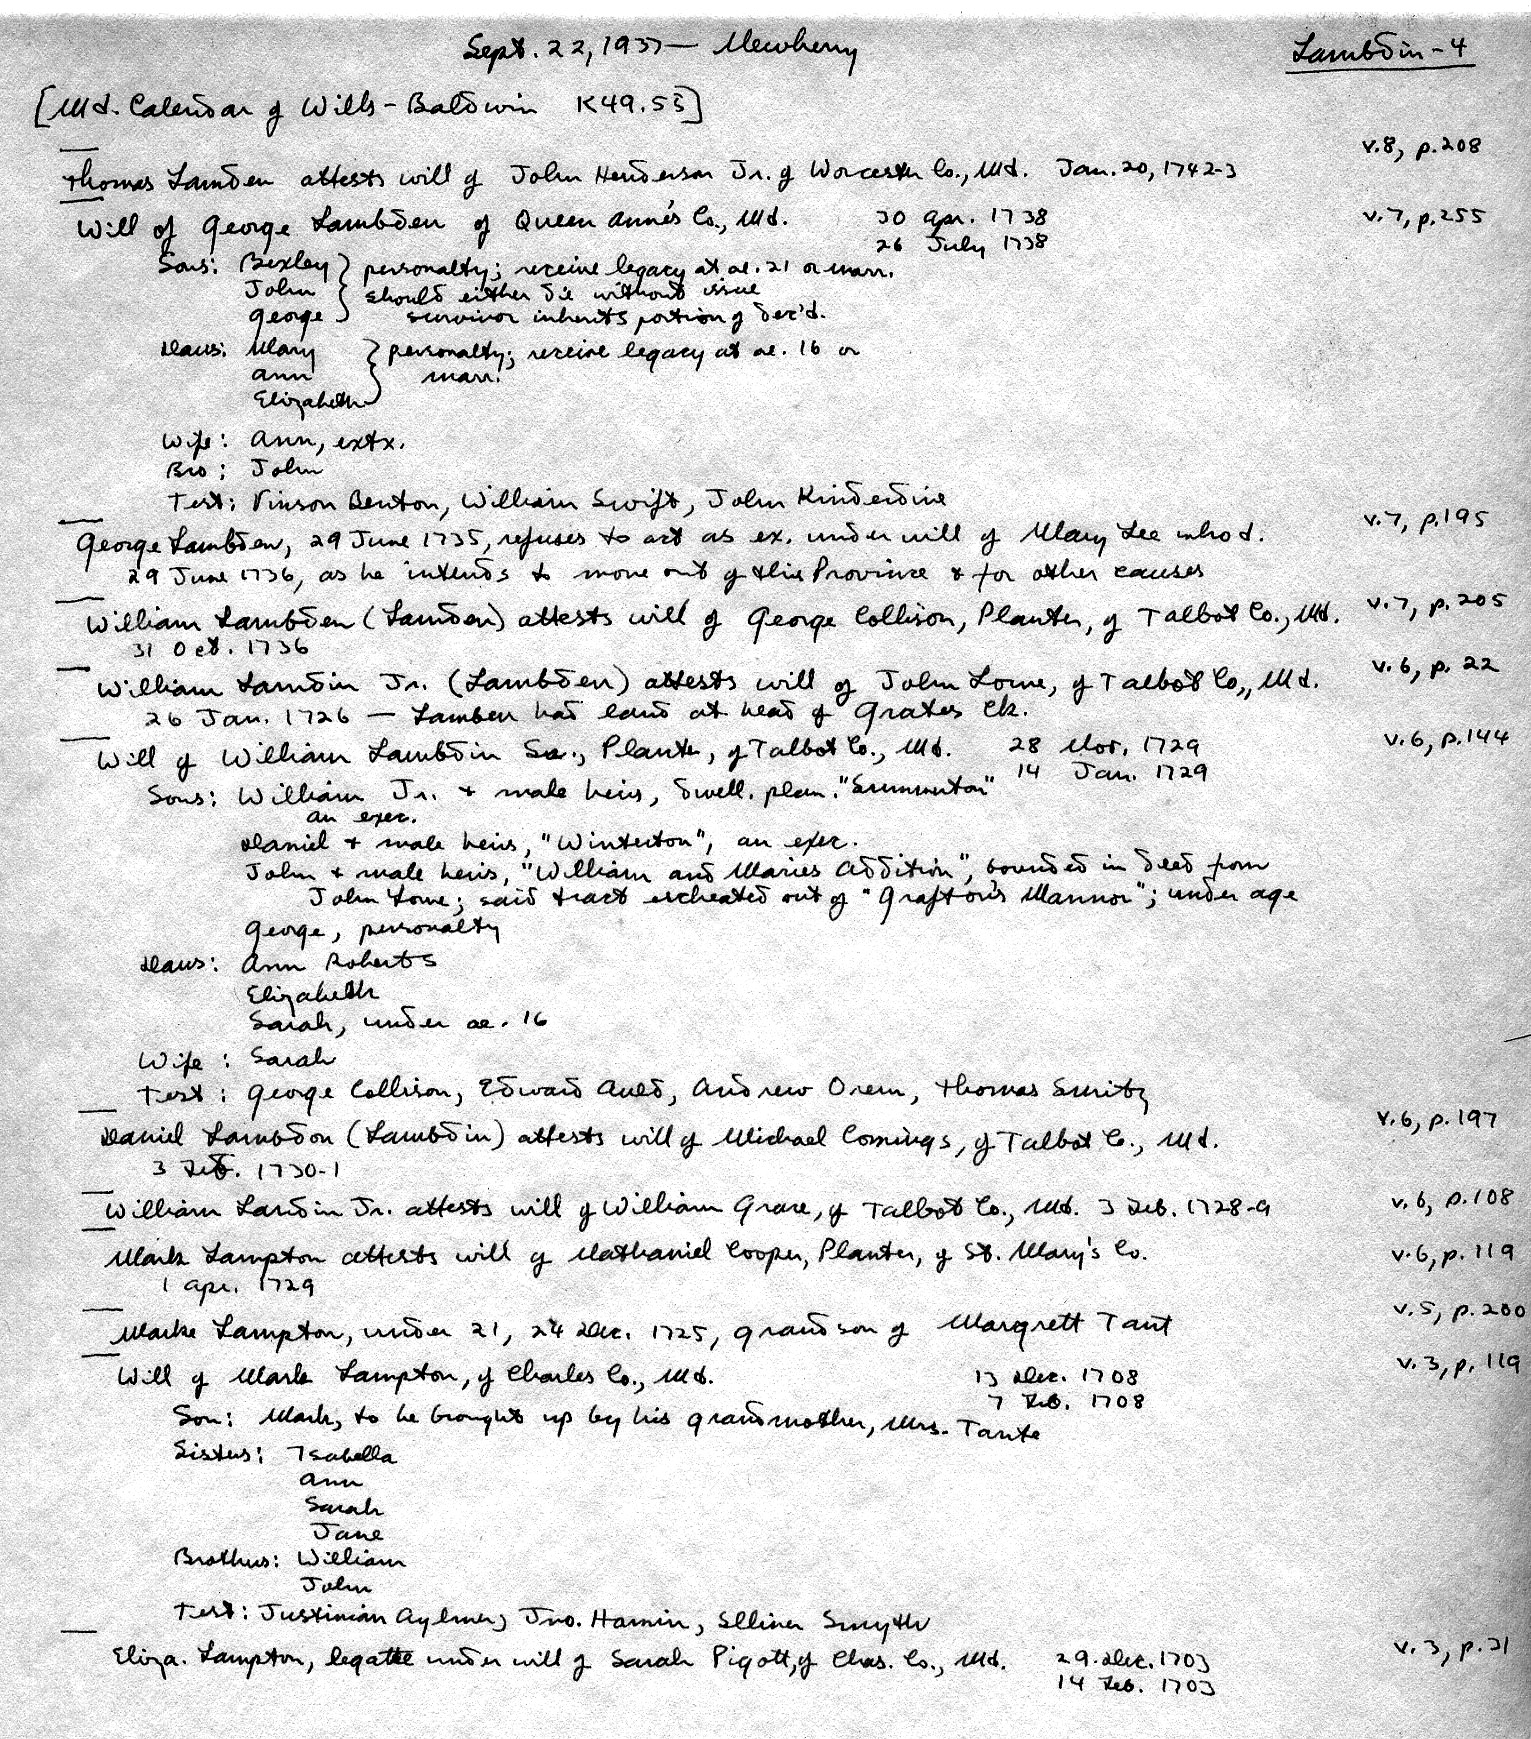 Sept. 22, 1937 — Newberry Lambdin-4
[Md. Calendar of Wills - Baldwin K49.53]
v.8, p.208
Thomas Lamden attests will of John Henderson Jr. of Worcester Co., Md. Jan. 20, 1742-3
Will of George Lambden of Queen Anne's Co., Md. 30 Apr. 1738 v.7, p.255
26 July 1738
Sons: Bexley } personalty; receive legacy at ae. 21 or marr.
John { should either die without issue
George } survivor inherits portion of dec'd.
Daus: Mary } personalty; receive legacy at ae. 16 or
Ann } marr.
Elizabeth
Wife: Ann, extx.
Bro: John
Test: Vinson Benton, William Swift, John Kinderdine
George Lambden, 29 June 1735, refuses to act as ex. under will of Mary Lee who d. v.7, p.195
29 June 1736, as he intends to move out of this Province & for other causes
William Lambden (Lamden) attests will of George Collison, Planter, of Talbot Co., Md. v.7, p.205
31 Oct. 1736
William Lamdin Jr. (Lambden) attests will of John Lowe, of Talbot Co., Md. v.6, p.22
26 Jan. 1726 — Lamben had land at head of Grates Ck.
Will of William Lambdin Sr., Planter, of Talbot Co., Md. 28 Nov. 1729 v.6, p.144
14 Jan. 1729
Sons: William Jr. & male heirs, dwell. plan. "Summerton"
an exec.
Daniel & male heirs, "Winterton", an exec.
John & male heirs, "William and Maries Addition", bounded in deed from
John Lowe; said tract escheated out of "Grafton's Mannor"; under age
George, personalty
Daus: Ann Roberts
Elizabeth
Sarah, under ae. 16
Wife: Sarah
Test: George Collison, Edward Auld, Andrew Orem, Thomas Smith
Daniel Lambdon (Lambdin) attests will of Michael Comings, of Talbot Co., Md. v.6, p.197
3 Feb. 1730-1
William Landin Jr. attests will of William Grace, of Talbot Co., Md. 3 Feb. 1728-9 v.6, p.108
Mark Lampton attests will of Nathaniel Cooper, Planter, of St. Mary's Co. v.6, p.119
1 Apr. 1729
Marke Lampton, under 21, 24 Dec. 1725, grandson of Margrett Tant v.5, p.200
Will of Mark Lampton, of Charles Co., Md. 13 Dec. 1708 v.3, p.119
7 Feb. 1708
Son: Mark, to be brought up by his grandmother, Mrs. Tante
Sisters: Isabella
Ann
Sarah
Jane
Brothers: William
John
Test: Justinian Aylmer, Jno. Hamin, Elliner Smyth
Eliza. Lampton, legatee under will of Sarah Pigott, of Chas. Co., Md. 29 Dec. 1703 v.3, p.31
14 Feb. 1703